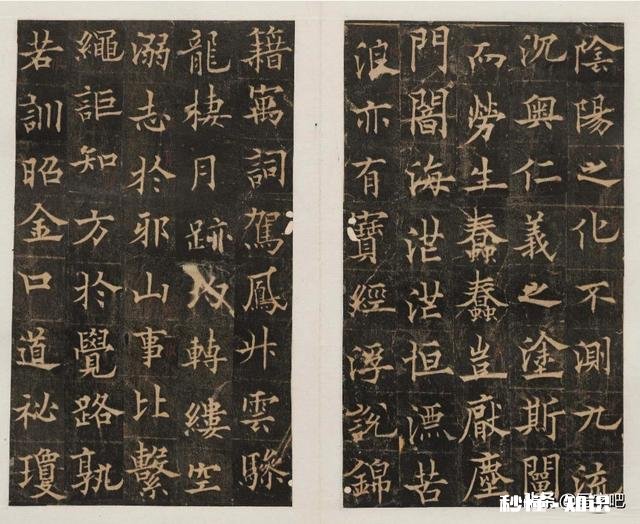 陰陽之化不測九流
沉奥仁義之塗斯闡
而勞生蠢蠢豈厭塵
門闇海茫茫恒漂苦
浪亦有寶經浮說錦
籍寓詞駕鳳升雲驂
龍棲月跡轉縷空
溺志於邪山事比繫
繩詎知方於覺路孰
若訓昭金口道祕瓊